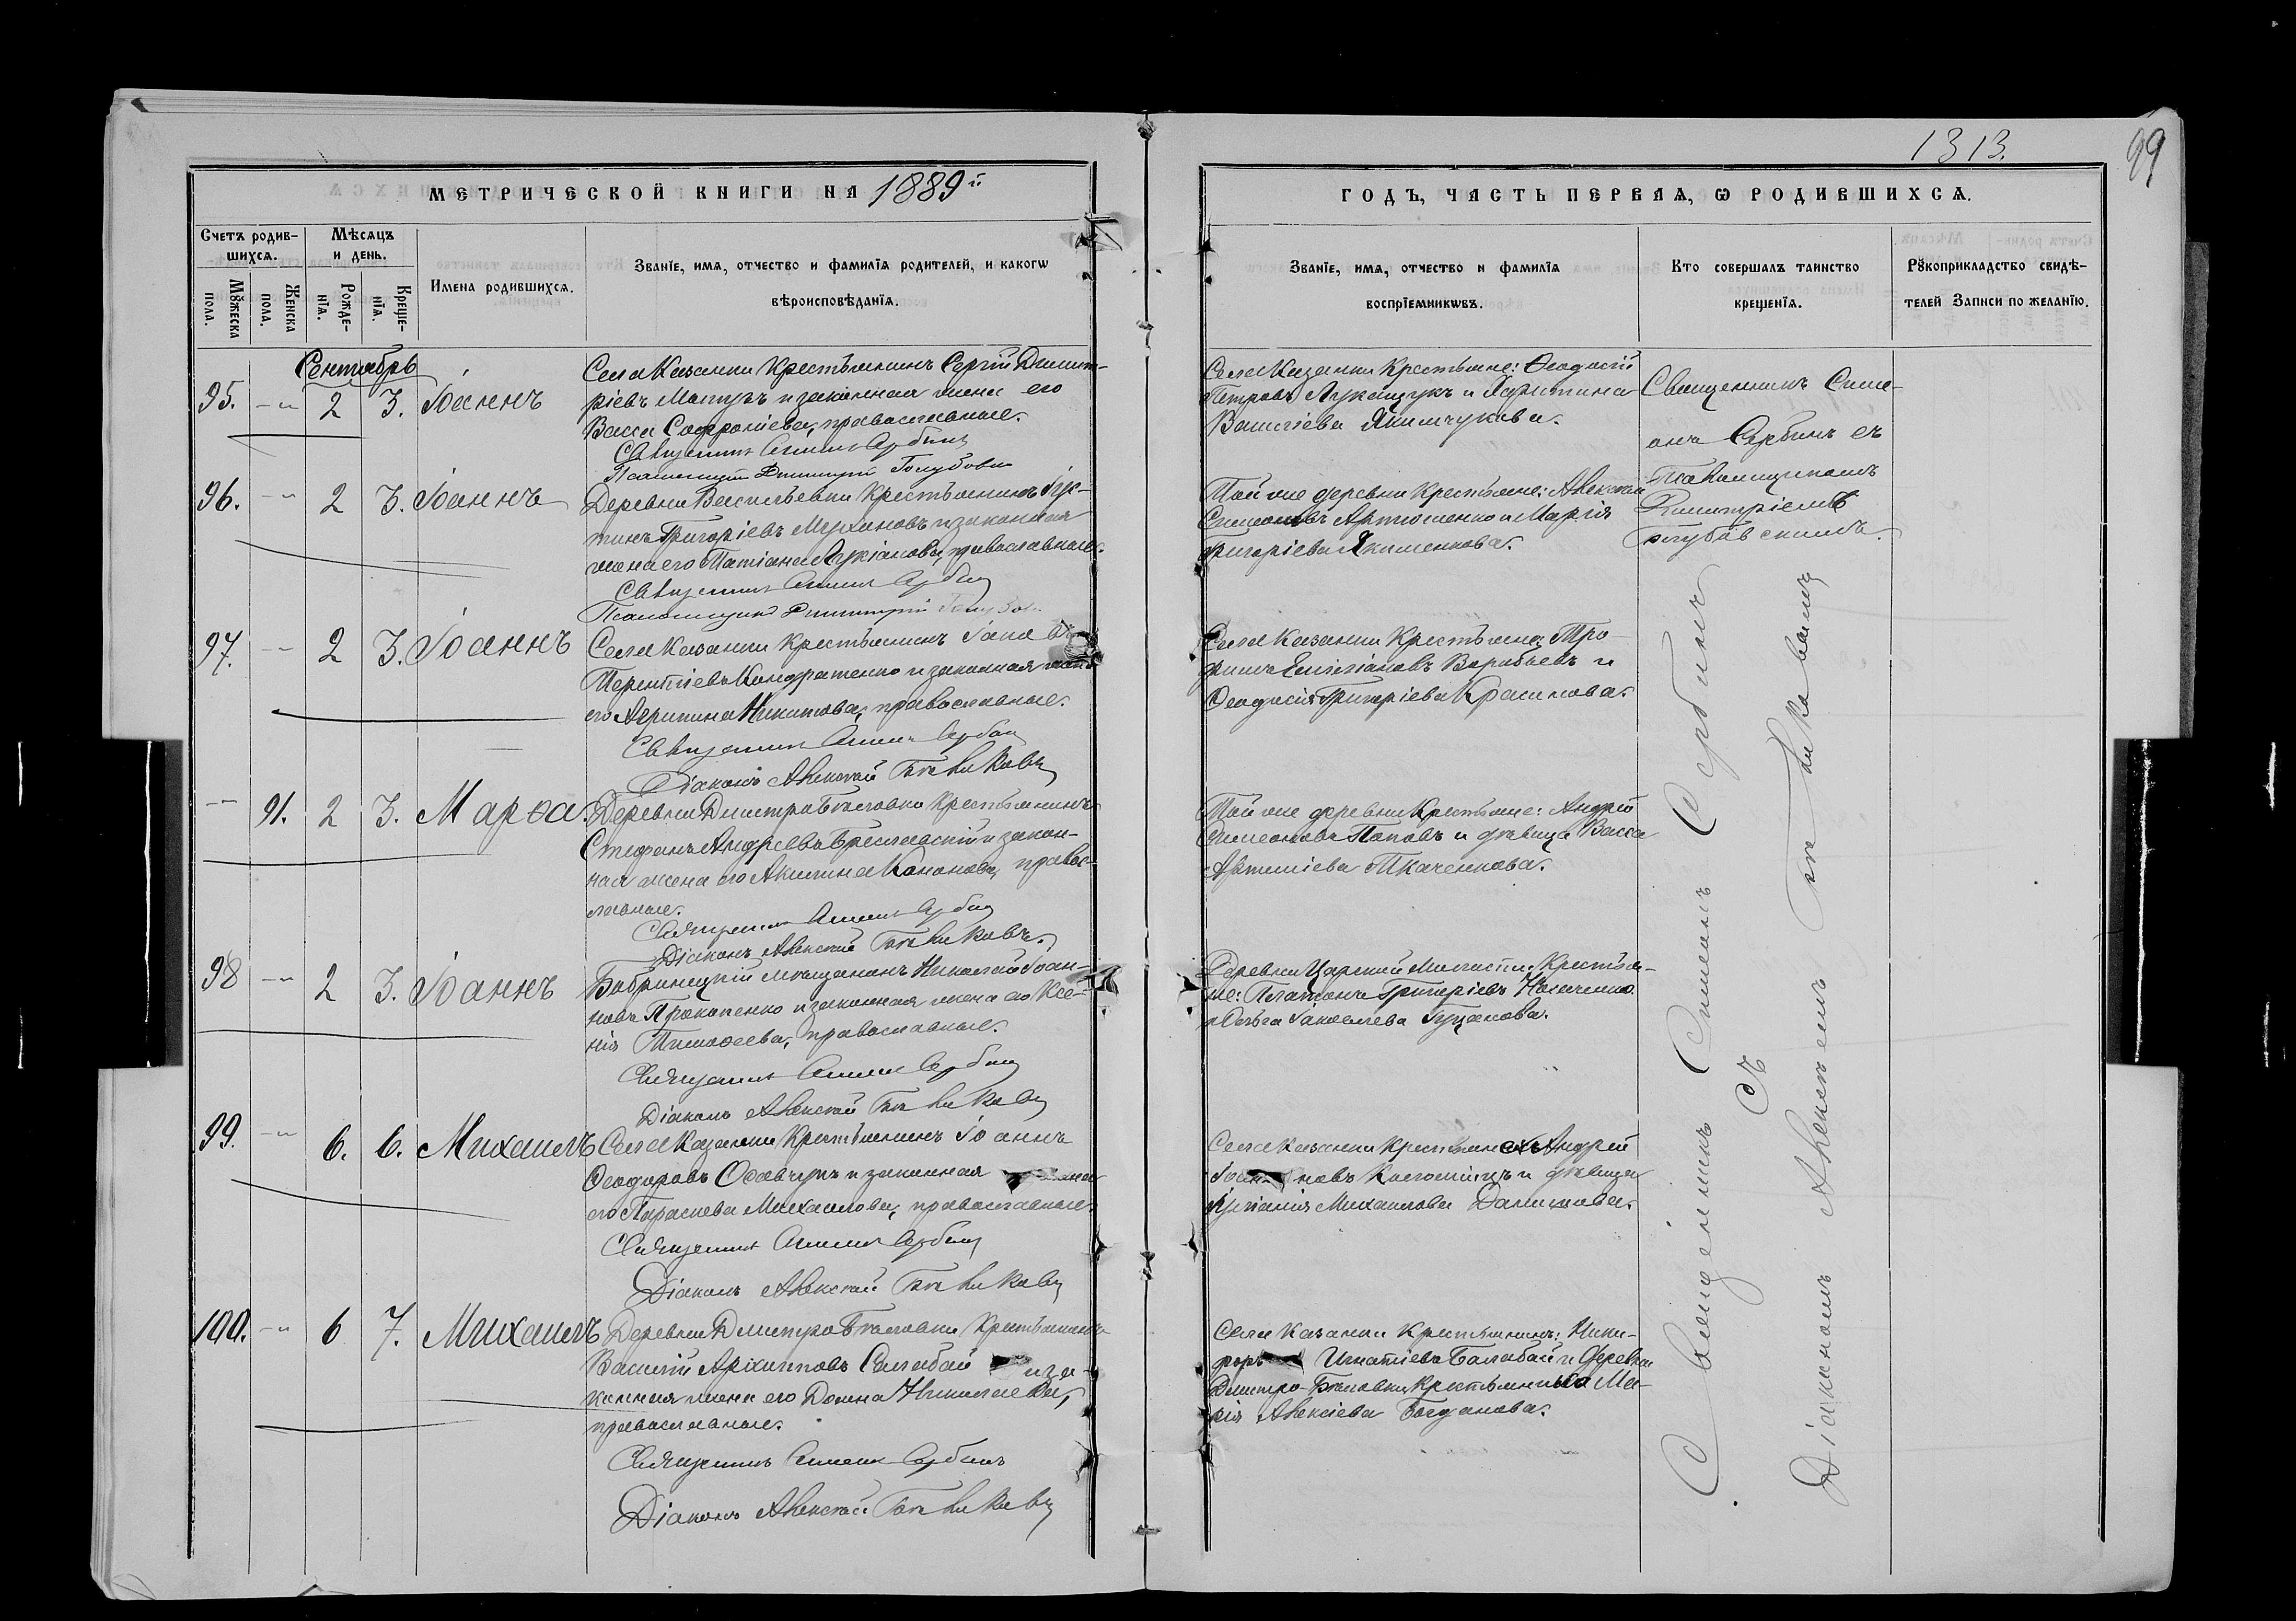 1313.
99
МЕТРИЧЕСКОЙ КНИГИ НА 1889й
ГОДЪ, ЧАСТЬ ПЕРВАѦ, Ѡ РОДИВШИХСѦ.
Счетъ родив-
шихсѧ.
Мѣсѧцъ
и день.
Мꙋжеска
пола.
Женска
пола.
Рожде-
нїѧ.
Креще-
нїѧ.
Имена родившихсѧ.
Званїе, имѧ, отчество и фамилїѧ родителей, и какогѡ
вѣроисповѣданїѧ.
Званїе, имѧ, отчество и фамилїѧ
воспрїемникѡвъ.
Кто совершалъ таинство
крещенїѧ.
Рꙋкоприкладство свидѣ-
телей Записи по желанїю.
Сентябрь
95. -"- 2 3. Іоаннъ
Села Казанки Крестьянинъ Сергій Димит-
ріевъ Мапузъ и законная жена его
Васса Софроніева, православные.
Священникъ Симеонъ Сербинъ
Псаломщикъ Димитрій Голубовскій
Села Казанки Крестьяне: Ѳеодосій
Петровъ Лукащукъ и Харитина
Василіева Якимчукова.
Священникъ Симе-
онъ Сербинъ съ
Псаломщикомъ
Димитріемъ
Голубовскимъ.
96. -"- 2 3. Іоаннъ
Деревни Васильевки Крестьянинъ Іус-
тинъ Григоріевъ Мухиновъ и законная
жена его Татіана Лукіанова, православные.
Священникъ Симеонъ Сербинъ
Псаломщикъ Димитрій
Той же деревни Крестьяне: Алексій
Симеоновъ Артюшенко и Марія
Григоріева Якименкова.
97. -"- 2 3. Іоаннъ
Села Казанки Крестьянинъ
Терентіевъ Кондратенко и законная жена
его Агрипина Никитова, православные.
Священникъ Симеонъ Сербинъ
Діаконъ Алексій
Села Казанки Крестьяне: Тро-
фимъ Емиліановъ Воробьевъ и
Ѳеодосія Григоріева Красикова.
-"- 91. 2 3. Марѳа.
Деревни Дмитро Бѣловки Крестьянинъ
Стефанъ Андреевъ Бреславскій и закон-
ная жена его Акилина Кононова, правос-
лавные.
Священникъ Симеонъ Сербинъ
Діаконъ Алексій
Той же деревни Крестьяне: Андрей
Симеоновъ Поповъ и дѣвица Васса
Артеміева Ткаченкова.
98 -"- 2 3. Іоаннъ
Бобринецкій мѣщанинъ Николай Іоан-
новъ Прокопенко и законная жена его Ксе-
нія Тимоѳеева, православные.
Священникъ Симеонъ Сербинъ
Діаконъ Алексій
Деревни Царской Милости Крестья-
не: Платонъ Григоріевъ Носаченко
и Ольга Іаковлева Гуцанова.
99. -"- 6. 6. Михаилъ
Села Казанки Крестьянинъ Іоаннъ
Ѳеодоровъ Осавчукъ и законная жена
его Параскева Михаилова, православные.
Священникъ Симеонъ Сербинъ
Діаконъ Алексій
Села Казанки Крестьяне: Андрей
и дѣвица
Іуліанія Михаилова Данилова.
100. -"- 6 7. Михаилъ
Деревни Дмитро Бѣловки Крестьянинъ
Василій Архиповъ и за-
конная жена его Домна Николаева,
православные.
Священникъ Симеонъ Сербинъ
Діаконъ Алексій
Села Казанки Крестьянинъ: Ники-
форъ Игнатіевъ Балабай и деревни
Дмитро-Бѣловки Крестьянка Ма-
рія Алексіева Богданова.
Священникъ Симеонъ Сербинъ
съ
Діакономъ Алексѣемъ